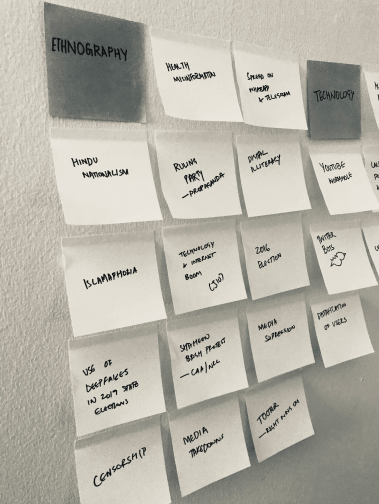 ETHNOGRAPHY
HEALTH
MISINFORMATION
SPREAD ON
WHATSAPP
& TELEGRAM
TECHNOLOGY
HINDU
NATIONALISM
RULING
PARTY
— PROPAGANDA
DIGITAL
ILLITERACY
YOUTUBE
ISLAMAPHOBIA
TECHNOLOGY
& INTERNET
BOOM
(JIO)
2016
ELECTION
TWITTER
BOTS
USE OF
DEEPFAKES
IN 2019 STATE
ELECTIONS
SHAHEEN
BAGH PROTEST
— CAA/NRC
MEDIA
SUPRESSION
OF USERS
CENSORSHIP
MEDIA
TAKEDOWNS